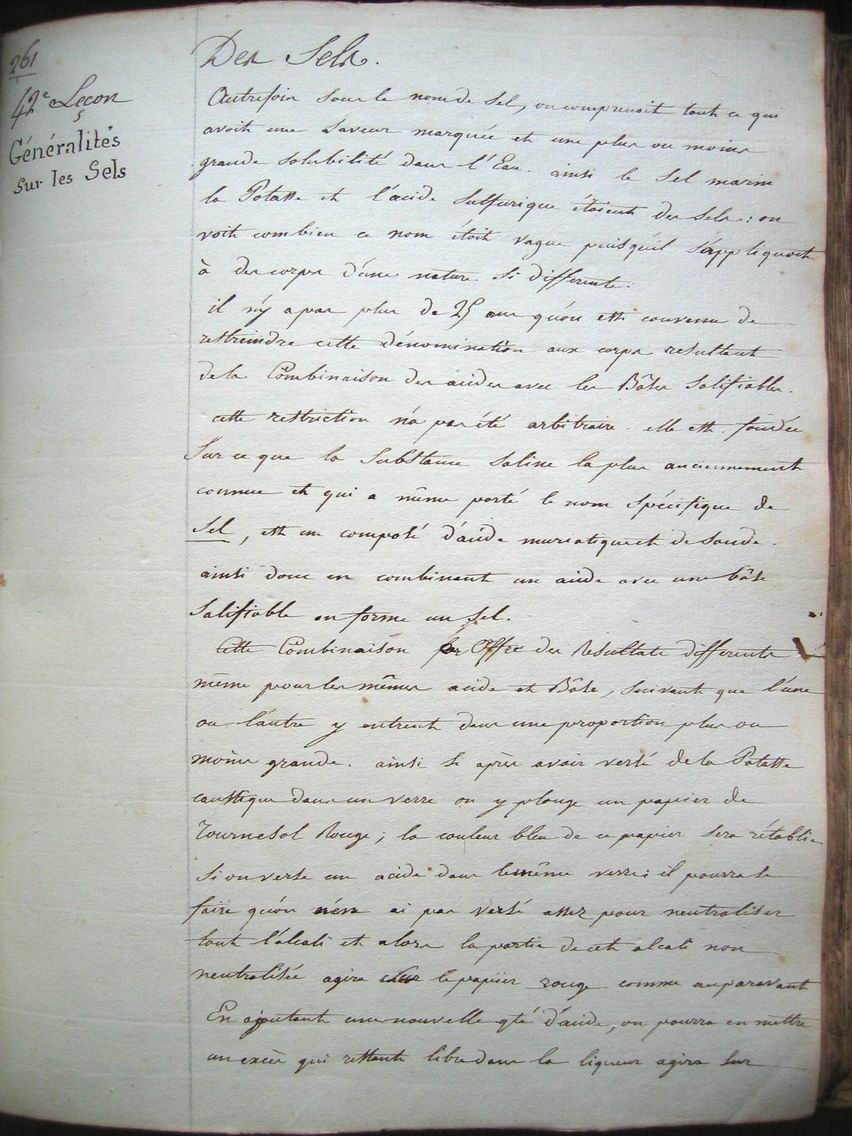 261
42e Leçon
Généralités
sur les Sels
Des Sels.
Autrefois sous le nom de Sel, on comprenoit tout ce qui
avoit une saveur marquée et une plus ou moins
grande solubilité dans l'Eau. ainsi le Sel marin
la Potasse et l'acide Sulfurique étoient des sels : on
voit combien ce nom étoit vague puisqu'il s'appliquoit
à des corps d'une nature si differente.
il n'y a pas plus de 25 ans qu'on est convenu de
restreindre cette dénomination aux corps resultant
de la Combinaison des acides avec les Bâses Salifiables.
cette restriction n'a pas été arbitraire. elle est fondée
Sur ce que la Substance saline la plus anciennement
connue et qui a même porté le nom spécifique de
Sel, est un composé d'acide muriatique et de Soude.
ainsi donc en combinant un acide avec une bâse
Salifiable on forme un Sel.
Cette Combinaison Offre des Résultats differents
même pour les mêmes acide et Bâse, suivant que l'une
ou l'autre y entrent dans une proportion plus ou
moins grande. ainsi si après avoir versé de la Potasse
caustique dans un verre on y plonge un papier de
Tournesol Rouge ; la couleur bleu de ce papier sera rétablie
Si on verse un acide dans le même verre; il pourra se
faire qu'on n'en ai pas versé assez pour neutraliser
tout l'alcali et alors la partie de cet alcali non
neutralisée agira sur le papier rouge comme auparavant
En ajoutant une nouvelle qté d'acide, on pourra en mettre
un excès qui restant libre dans la liqueur agira sur